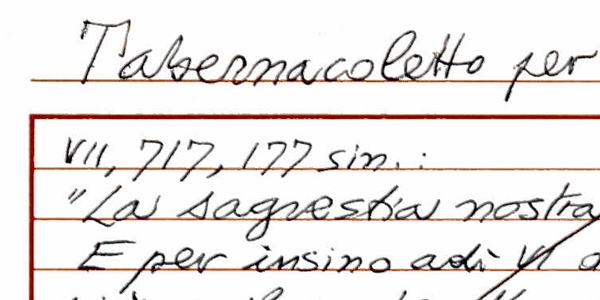 Tabernacoletto per
VII, 717, 177 sin.:
"La sagrestia nostra
E per insino adì VI